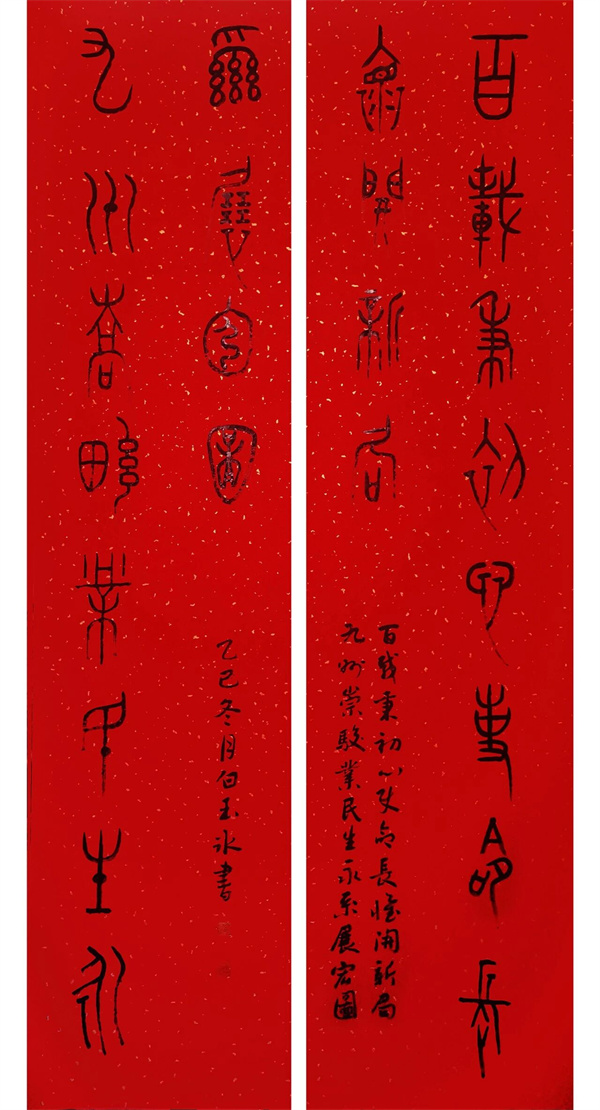 百載秉初心使命長
懷開新局
百載秉初心使命長懷開新局
九州崇駿業民生永系展宏圖
九州崇畯業民生永
系展宏圖
乙巳冬月白玉冰書